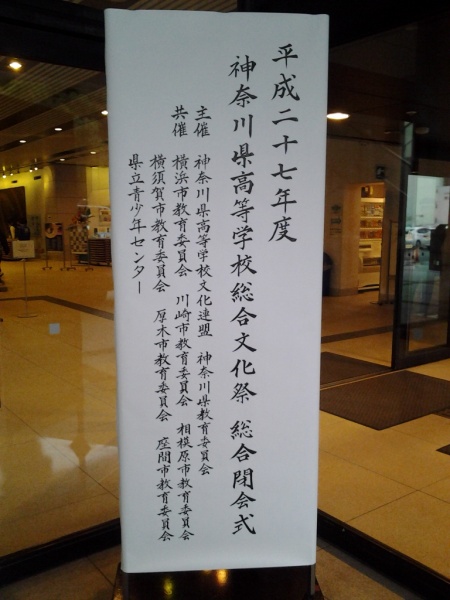 平成二十七年度
神奈川県高等学校総合文化祭 総合閉会式
主催 神奈川県高等学校文化連盟 神奈川県教育委員会
共催 横浜市教育委員会 川崎市教育委員会 相模原市教育委員会
横須賀市教育委員会 厚木市教育委員会 座間市教育委員会
県立青少年センター